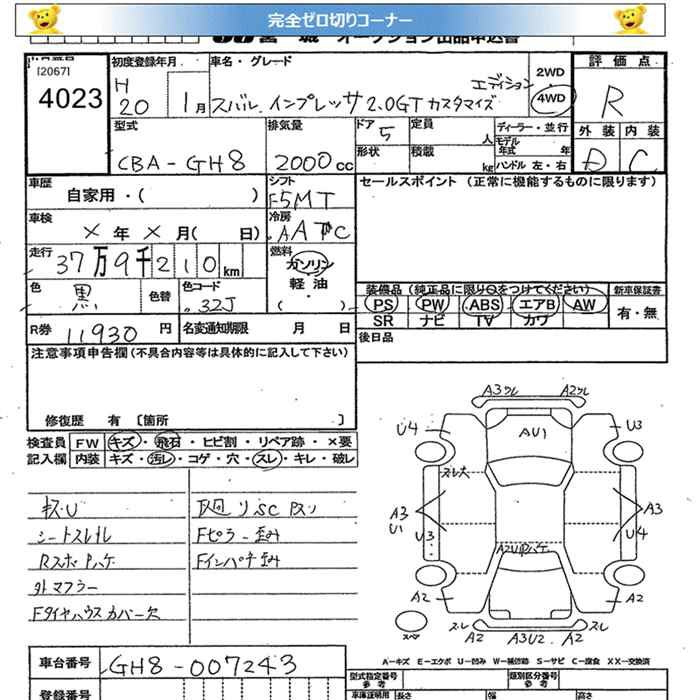 完全ゼロ切りコーナー
宮城 オークション出品申込書
[2067]
4023
初度登録年月
H
20 1月
車名・グレード
スバル インプレッサ 2.0GT カスタマイズ エディション
2WD
4WD
評価点
R
外装 内装
D C
型式
CBA-GH8
排気量
2000cc
ドア
5
形状
定員
人
積載
kg
ディーラー・並行
モデル年式 年
ハンドル 左・右
車歴
自家用・( )
シフト
F5MT
セールスポイント (正常に機能するものに限ります)
車検
× 年 × 月( 日)
冷房
AAC
走行
37万9千210km
燃料
ガソリン
軽油
( )
色
黒
色替
色コード
32J
R券 11930 円
名変通知期限 月 日
装備品 (純正品に限り○をつけてください)
PS PW ABS エアB AW
SR ナビ TV カワ
新車保証書
有・無
後日品
注意事項申告欄 (不具合内容等は具体的に記入して下さい)
修復歴 有 〔箇所 〕
検査員 FW キズ・飛石・ヒビ割・リペア跡・×要
記入欄 内装 キズ・汚れ・コゲ・穴・スレ・キレ・破レ
キズU
シートスレ
Rスポ Pハゲ
外マフラー
Fタイヤハウスカバー欠
Fピラー 歪み
Fインパネ歪み
A3ワレ A2ワレ
U4 AU1 U3
スレ大
A3 A3
U1 U3 U4
A2UPハゲ
A2 A2
スレ スレ
スペア A2 A3U2 A2
車台番号 GH8-007243
登録番号
A-キズ E-エクボ U-凹み W-補修跡 S-サビ C-腐食 XX-交換済
型式指定番号
参考
類別区分番号
参考
車庫証明用 長さ 幅 高さ